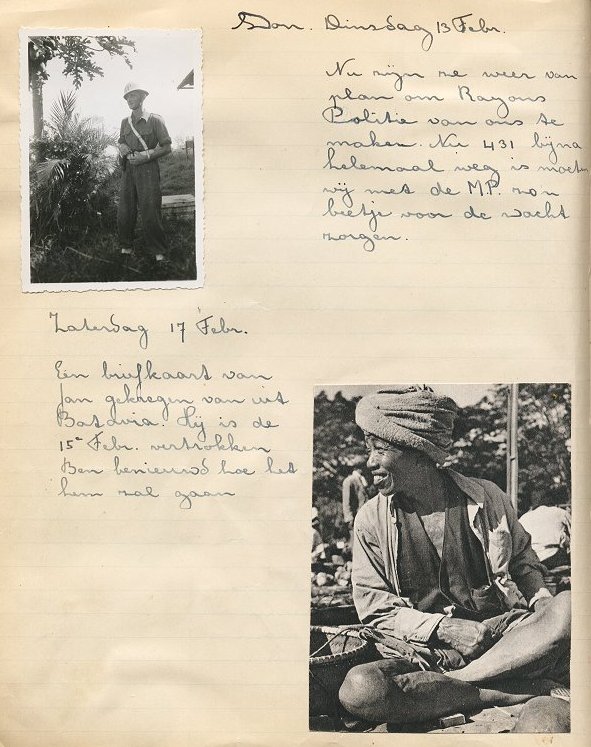 Don. Dinsdag 13 Febr.
Nu zijn ze weer van
plan om Rayons
Politie van ons te
maken. Nu 431 bijna
helemaal weg is moeten
wij met de M.P. zo'n
beetje voor de wacht
zorgen.
Zaterdag 17 Febr.
Een briefkaart van
Jan gekregen van uit
Batavia. Hij is de
15e Febr. vertrokken
Ben benieuwd hoe het
hem zal gaan